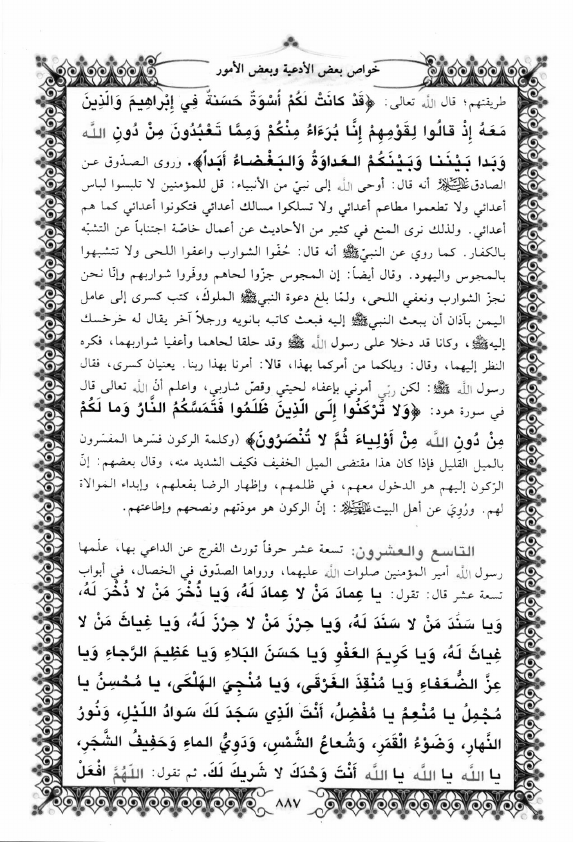 خواص بعض الأدعية وبعض الأمور
طريقتهم؛ قال الله تعالى: ﴿قَدْ كانَتْ لَكُمْ أُسْوَةٌ حَسَنةٌ فِي إِبْراهِيمَ وَالَّذِينَ
مَعَهُ إِذْ قالُوا لِقَوْمِهِمْ إِنَّا بُرَءَاءُ مِنْكُمْ وَمِمَّا تَعْبُدُونَ مِنْ دُونِ اللَّه
وَبَدا بَيْنَنا وَبَيْنَكُمُ العَداوَةُ وَالبَغْضاءُ أَبَداً﴾. وروى الصدّوق عن
الصادق عليه السلام أنه قال: أوحى الله إلى نبيّ من الأنبياء: قل للمؤمنين لا تلبسوا لباس
أعدائي ولا تطعموا مطاعم أعدائي ولا تسلكوا مسالك أعدائي فتكونوا أعدائي كما هم
أعدائي. ولذلك نرى المنع في كثير من الأحاديث عن أعمال خاصّة اجتناباً عن التشبّه
بالكفار. كما روي عن النبيّ ﷺ أنه قال: حُفّوا الشوارب واعفوا اللحى ولا تتشبهوا
بالمجوس واليهود. وقال أيضاً: إن المجوس جزّوا لحاهم ووفّروا شواربهم وإنّا نحن
نجزّ الشوارب ونعفي اللحى، ولمّا بلغ دعوة النبي ﷺ الملوك، كتب كسرى إلى عامل
اليمن بآذان أن يبعث النبي ﷺ إليه فبعث كاتبه بانويه ورجلاً آخر يقال له خرخسك
إليه ﷺ، وكانا قد دخلا على رسول الله ﷺ وقد حلقا لحاهما وأعفيا شواربهما، فكره
النظر إليهما، وقال: ويلكما من أمركما بهذا، قالا: أمرنا بهذا ربنا. يعنيان كسرى، فقال
رسول الله ﷺ: لكن ربّي أمرني بإعفاء لحيتي وقصّ شاربي، واعلم أنّ الله تعالى قال
في سورة هود: ﴿وَلا تَرْكَنُوا إِلَى الَّذِينَ ظَلَمُوا فَتَمَسَّكُمُ النَّارُ وَما لَكُمْ
مِنْ دُونِ اللَّه مِنْ أَوْلِياءَ ثُمَّ لا تُنْصَرُونَ﴾ (وكلمة الركون فسّرها المفسّرون
بالميل القليل فإذا كان هذا مقتضى الميل الخفيف فكيف الشديد منه، وقال بعضهم: إنّ
الرّكون إليهم هو الدخول معهم، في ظلمهم، وإظهار الرضا بفعلهم، وإبداء الموالاة
لهم. ورُويَ عن أهل البيت عليهم السلام: إنّ الركون هو مودّتهم ونصحهم وإطاعتهم.
التاسع والعشرون: تسعة عشر حرفاً تورث الفرج عن الداعي بها، علّمها
رسول الله أمير المؤمنين صلوات الله عليهما، ورواها الصدّوق في الخصال، في أبواب
تسعة عشر قال: تقول: يا عِمادَ مَنْ لا عِمادَ لَهُ، وَيا ذُخْرَ مَنْ لا ذُخْرَ لَهُ،
وَيا سَنَدَ مَنْ لا سَنَدَ لَهُ، وَيا حِرْزَ مَنْ لا حِرْزَ لَهُ، وَيا غِياثَ مَنْ لا
غِياثَ لَهُ، وَيا كَرِيمَ العَفْوِ وَيا حَسَنَ البَلاءِ وَيا عَظِيمَ الرَّجاءِ وَيا
عِزَّ الضُّعَفاءِ وَيا مُنْقِذَ الغَرْقَى، وَيا مُنْجِيَ الهَلْكَى، يا مُحْسِنُ يا
مُجْمِلُ يا مُنْعِمُ يا مُفْضِلُ، أَنْتَ الَّذِي سَجَدَ لَكَ سَوادُ اللَّيْلِ، وَنُورُ
النَّهارِ، وَضَوْءُ القَمَرِ، وَشُعاعُ الشَّمْسِ، وَدَوِيُّ الماءِ وَحَفِيفُ الشَّجَرِ،
يا اللَّه يا اللَّه يا اللَّه أَنْتَ وَحْدَكَ لا شَرِيكَ لَكَ. ثم تقول: اللّهُمَّ افْعَلْ
٨٨٧